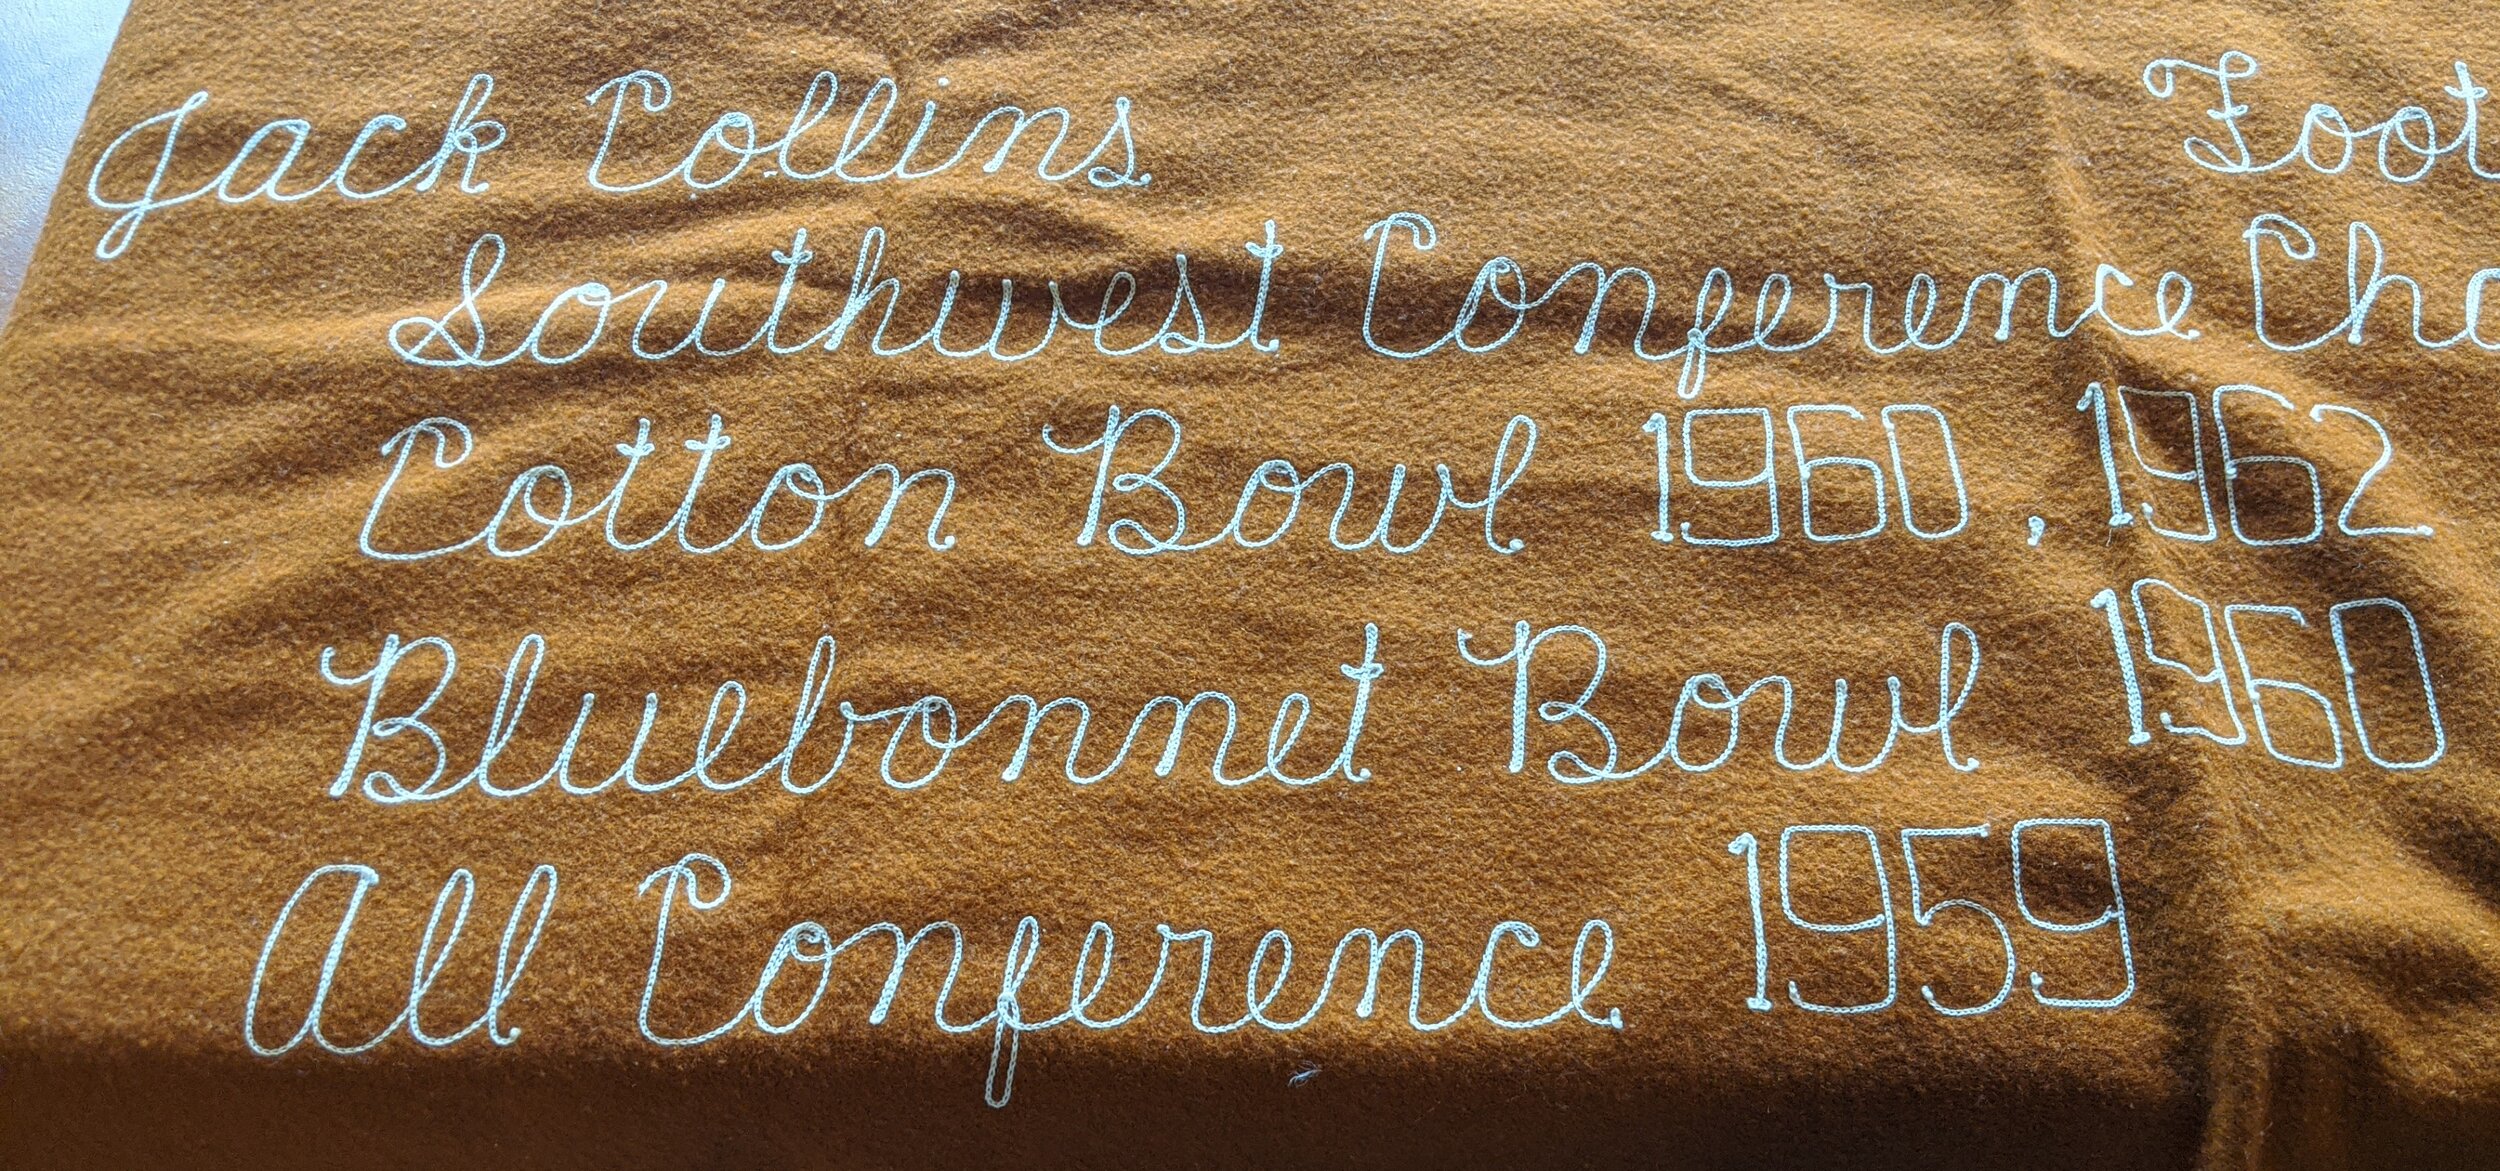 Jack Collins Foot
Southwest Conference Cha
Cotton Bowl 1960, 1962
Bluebonnet Bowl 1960
All Conference 1959